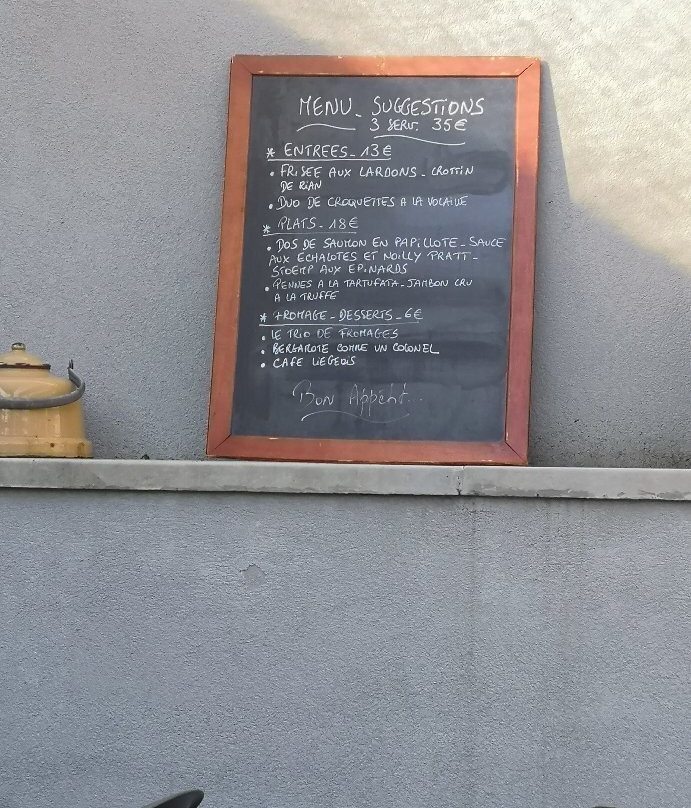 MENU_ SUGGESTIONS
3 SERV. 35€
* ENTREES_ 13€
• FRISEE AUX LARDONS_ CROTTIN
DE RIAN
• DUO DE CROQUETTES A LA VOLAILLE
* PLATS_ 18€
• DOS DE SAUMON EN PAPILLOTE_ SAUCE
AUX ECHALOTES ET NOILLY PRATT_
STOEMP AUX EPINARDS
• PENNES A LA TARTUFATA_ JAMBON CRU
A LA TRUFFE
* FROMAGE_ DESSERTS_ 6€
• LE TRIO DE FROMAGES
• BERGAMOTE COMME UN COLONEL
• CAFE LIEGEOIS
Bon Appétit...